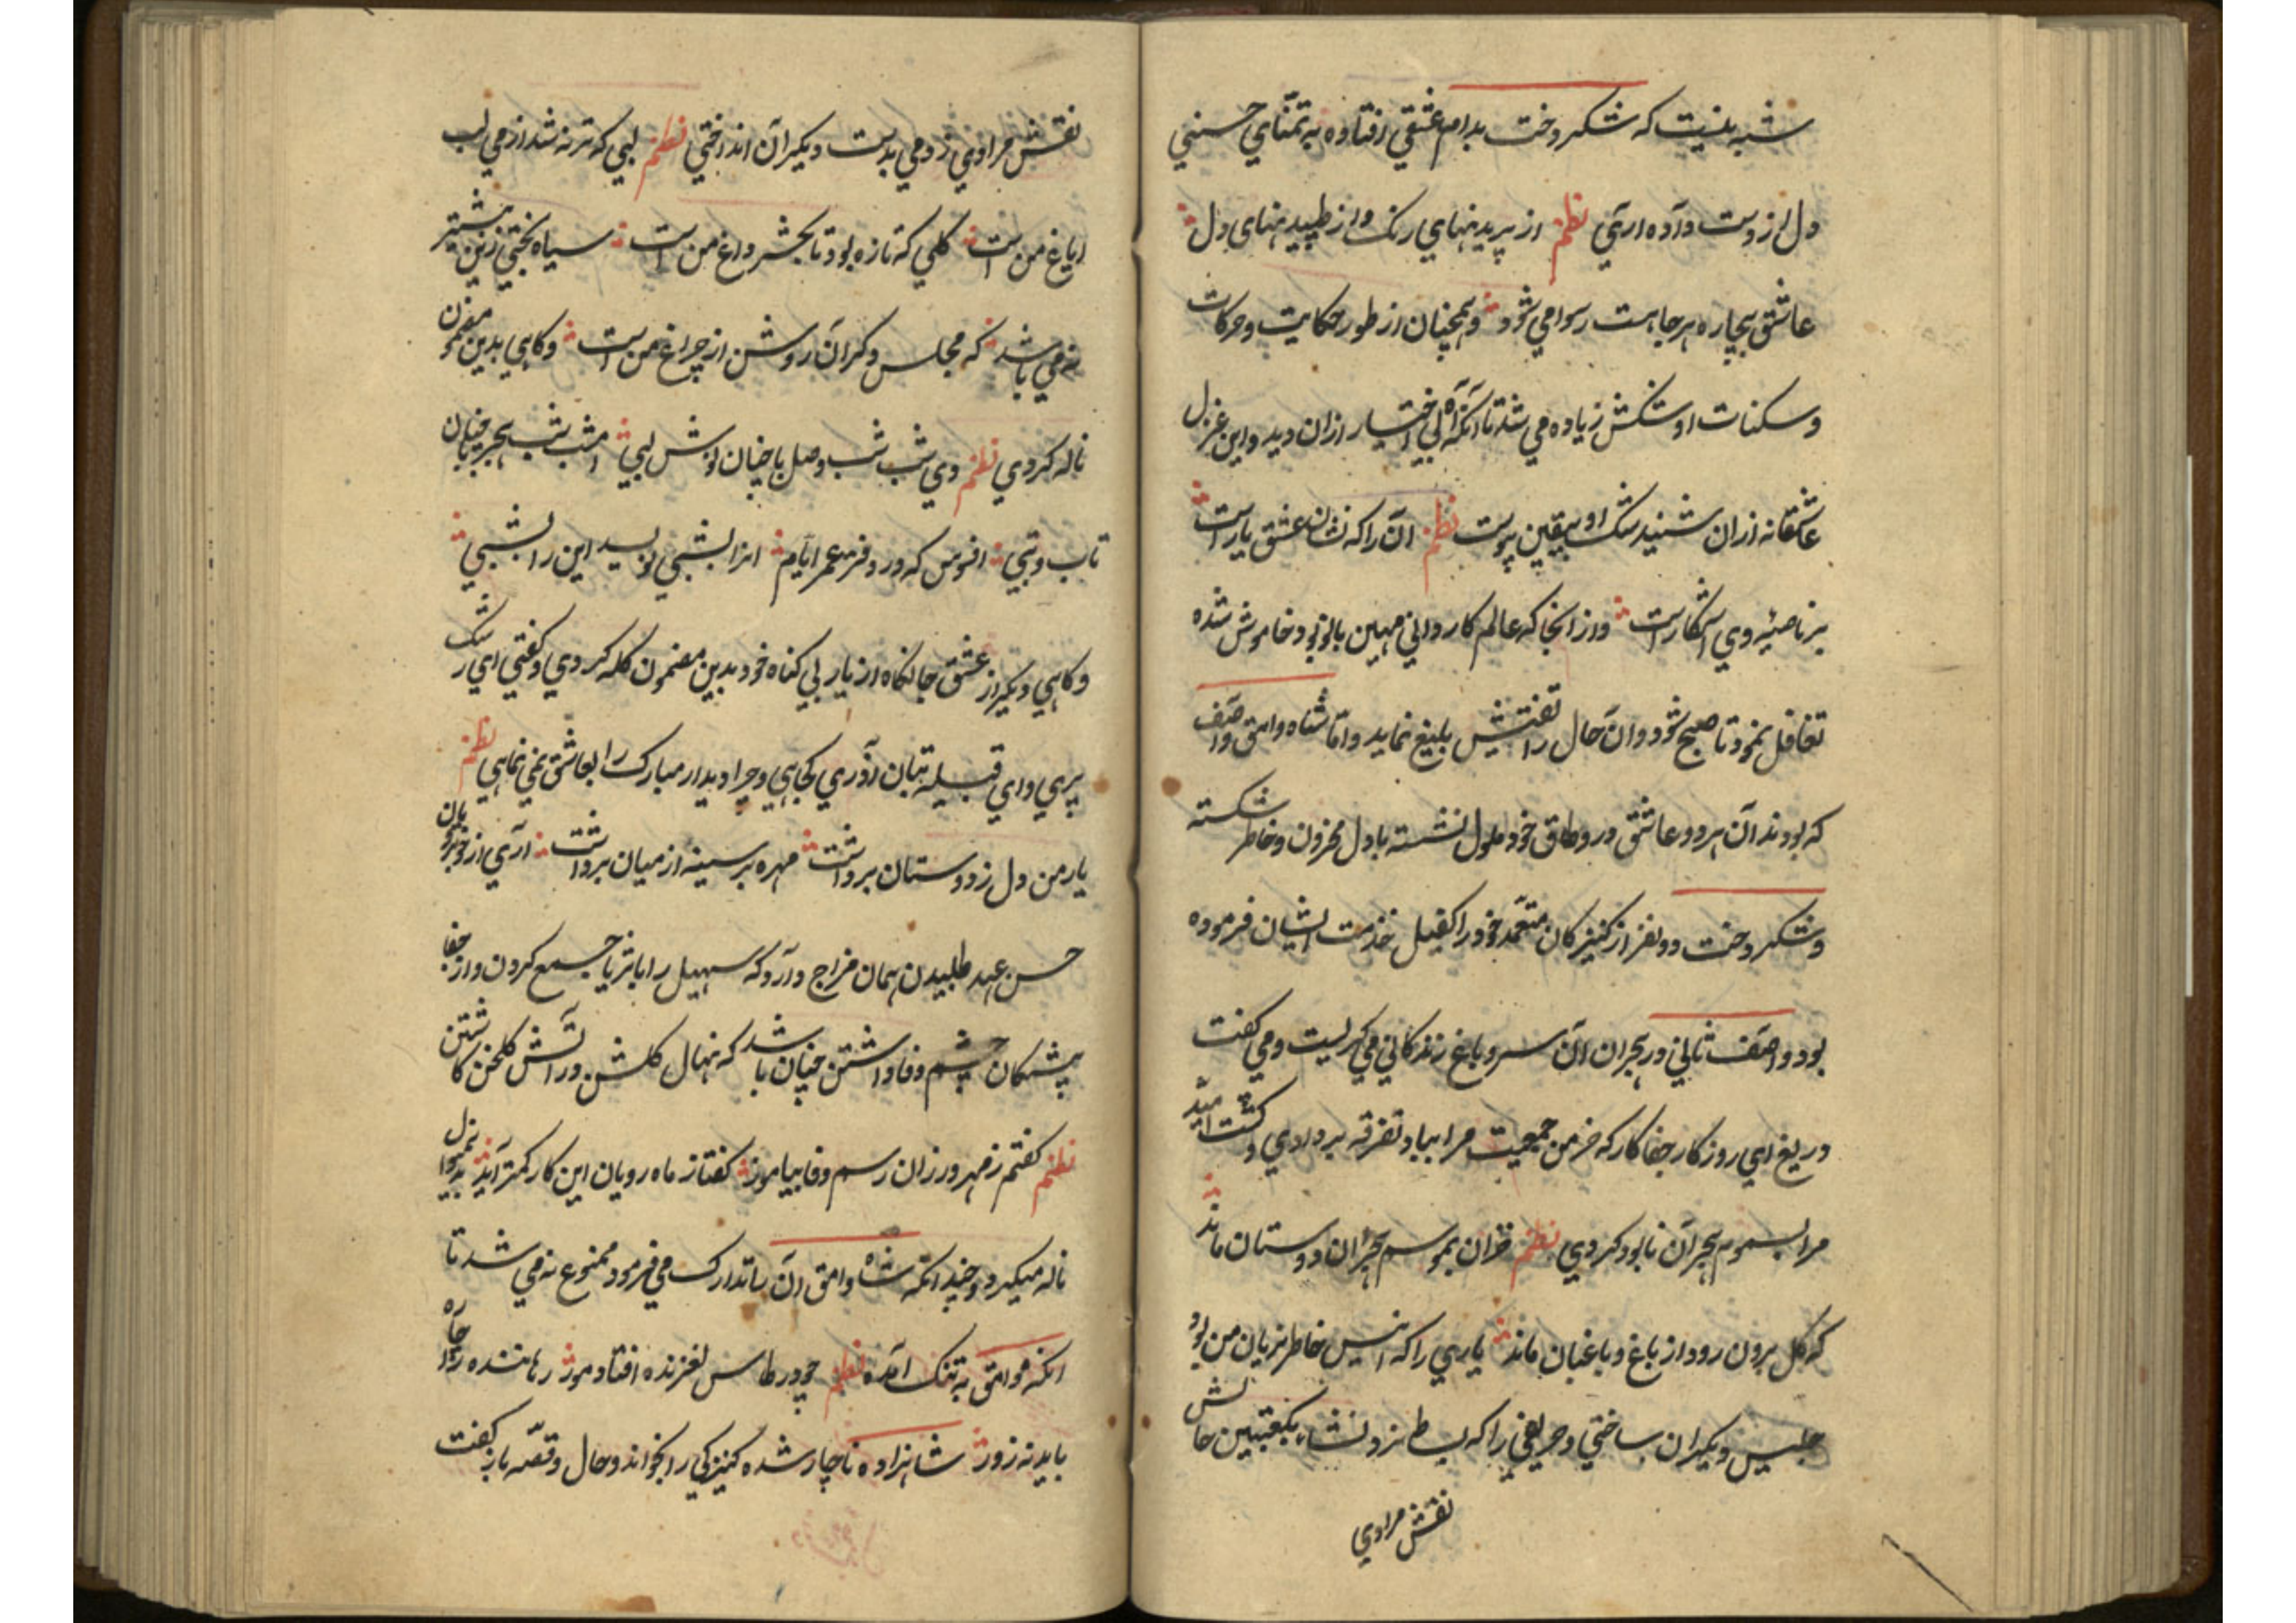 شبه بنیست که شکر دخت بدام عشقی افتاده به تمنای حسنی
دل از دست داده آری نظم از پریدنهای رنک و از طپیدنهای دل
عاشق بیچاره هر جا هست رسوا می شود وهمچنان از طور حکایت وحرکات
وسکنات او شکش زیاده می شد تا آنکه آه بی اختیار ازان دید واین غزل
عاشقانه ازان شنید شک او بیقین پیوست نظم آن را که نشان عشق یارست
بر ناصیه وی آشکارست واز انجا که عالم کاردانی مهین بانو بود خاموش شده
تغافل نمود تا صبح شود وآن حال را تفتیش بلیغ نماید واما شاه وامق وآصف
که بودند آن هر دو عاشق در وطاق خود ملول نشسته با دل محزون وخاطر شکسته
وشکر دخت دو نفر از کنیزکان متعمد خود را کفیل خذمت ایشان فرموده
بود وآصف ثانی در هجران آن سرو باغ زندکانی می کریست ومی کفت
دریغ ای روزکار جفا کار که خرمن جمعیت مرا بباد تفرقه بر دادی وکشت امید
مرا بسموم هجران نابود کردی نظم خزان بموسم هجران دوستان ماند
که کل برون رود از باغ وباغبان ماند یاری را که انیس خاطر بریان من بود
جلیس دیکران ساختی وحریفی را که بساط نرد نشاء بکعبتین حالش
نقش مرادی
نقش مرادی زدمی بدست دیکران انداختی نظم لبی که تر نه شد از می لب
ایاغ من است کلی که تازه بود تا بحشر داغ من است سیاه بختی ازین بیشتر
نه می باشد که مجلس دکران روشن از چراغ من است وکاهی بدین مضمون
ناله کردی نظم دی شب شب وصل با چنان نوش لبی امشب شب هجر با چنان
تاب وتبی افسوس که در دفتر عمر ایام انرا بشبی نویسد این را بشبی
وکاهی دیکر از عشق جانکاه از یار بی کناه خود بدین مضمون کله کردی وکفتی ای رشک
پری وای قبیله بتان آذری کجایی وچرا دیدار مبارک را بعاشق نمی نمایی نظم
یار من دل ز دوستان برداشت مهره بر سینه از میان برداشت آری از خوبرویان
حسن عهد طلبیدن همان مزاج دارد که سهیل را با ثریا جمع کردن واز جفا
پیشکان چشم وفا داشتن چنان باشد که نهال کلشن در آتش کلخن کاشتن
نظم کفتم ز مهر ورزان رسم وفا بیاموز کفتا ز ماه رویان این کار کمتر آید بدینمنوال
ناله میکرد وچند انکه شاه وامق آن را تدارک می فرمود ممنوع نه می شد تا
انکه موامق به تنک آمده نظم چو در طاس لغزنده افتاد مور رهاننده را چاره
باید نه زور شاهزاده ناچار شده کنیزکی را بخواند وحال وقصه باز کفت